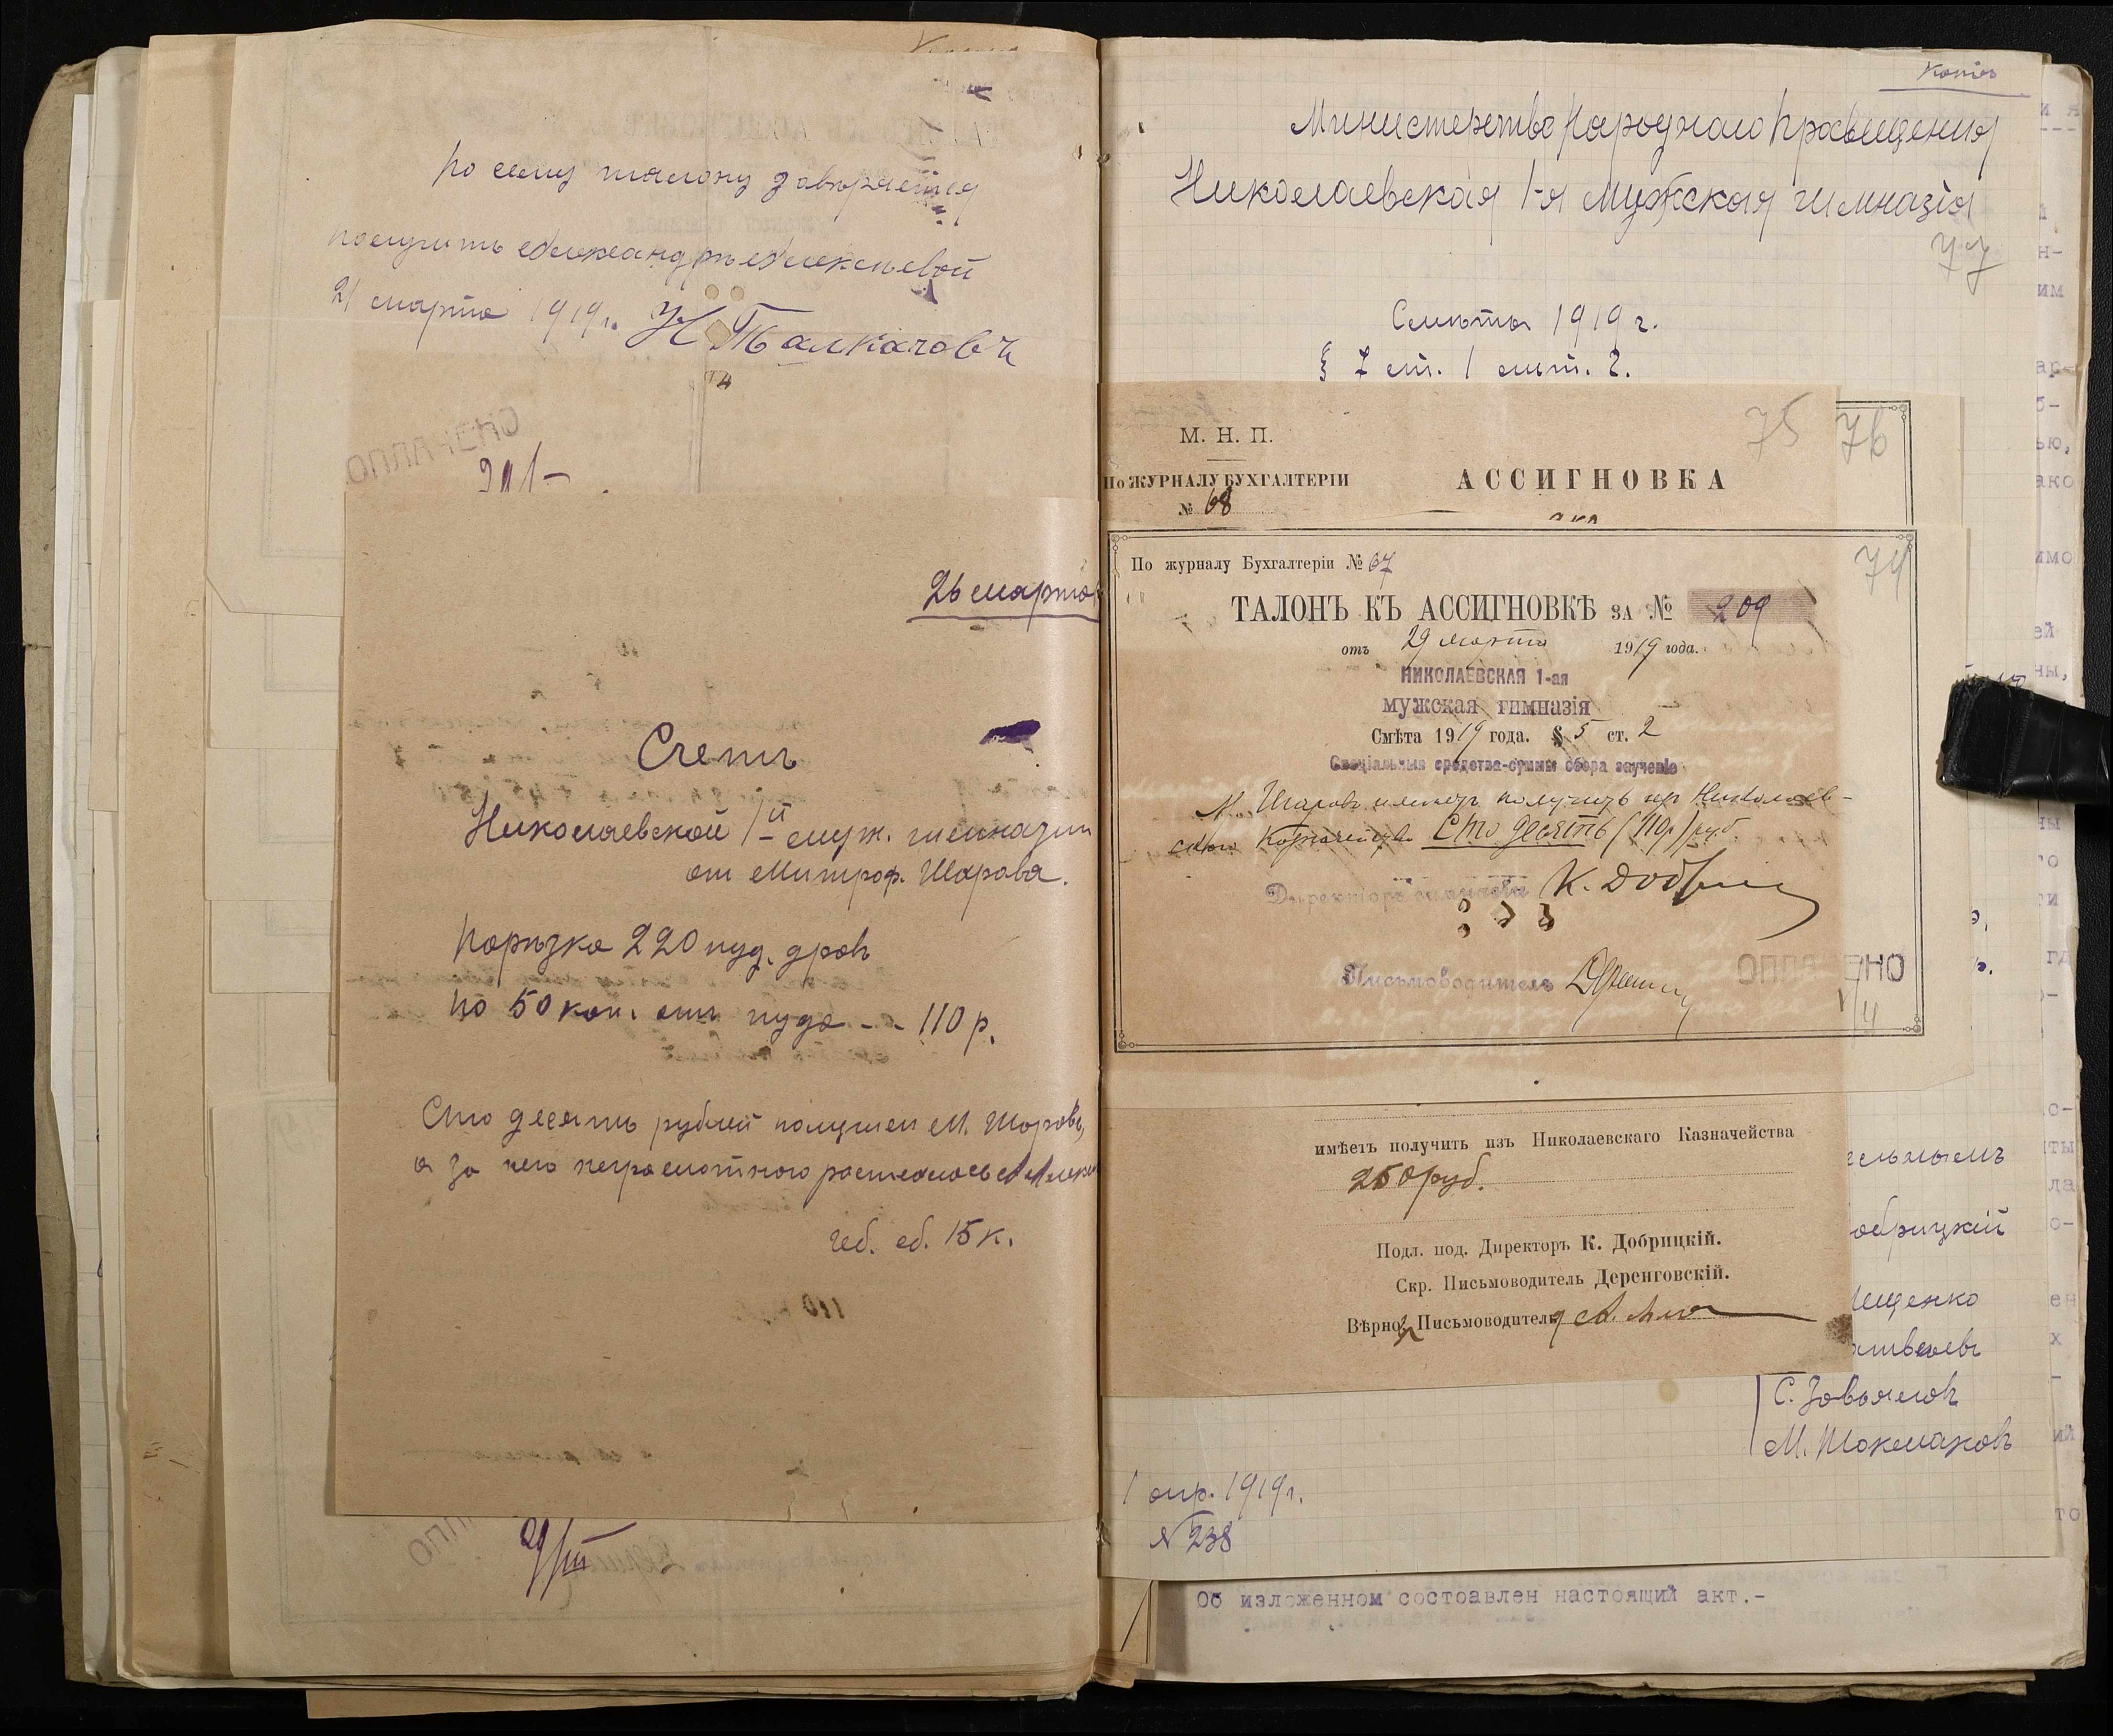 По сему талону доверяется
получить Александре Алексеевой
21 марта 1919 г. Н Талкачовъ
ОПЛАЧЕНО
26 марта
Счетъ
Николаевской 1й муж. гимназии
от Митроф. Шарова.
Порѣзка 220 пуд. дровъ
по 50 коп. отъ пуда - - 110 р.
Сто десять рублей получил М. Шаровъ,
а за него неграмотного росписалась
геб. сб. 15 к.
29/III
Копія
Министерство Народнаго Просвѣщения
Николаевская 1-я мужская гимназія
77
Смѣта 1919 г.
§ 7 ст. 1 лит. 2.
75
76
М. Н. П.
По ЖУРНАЛУ БУХГАЛТЕРІИ
№ 68
АССИГНОВКА
74
По журналу Бухгалтеріи № 67
ТАЛОНЪ КЪ АССИГНОВКѢ ЗА № 209
отъ 29 марта 1919 года.
НИКОЛАЕВСКАЯ 1-ая
мужская гимназія
Смѣта 1919 года. § 5 ст. 2
Спеціальныя средства-суммы сбора за ученіе
М. Шаровъ имѣетъ получить изъ Николаев-
скаго Казначейства Сто десять (110р) руб.
Директоръ гимназіи К. Добриц
Письмоводитель
ОПЛАЧЕНО
1/4
имѣетъ получить изъ Николаевскаго Казначейства
250 руб.
Подл. под. Директоръ К. Добрицкій.
Скр. Письмоводитель Деренговскій.
Вѣрно: Письмоводитель
ельнымъ
обрицкій
Ищенко
атвеевъ
С. Завьяловъ
М. Токмаковъ
1 апр. 1919 г.
№ 238
Об изложенном состоавлен настоящий акт.-